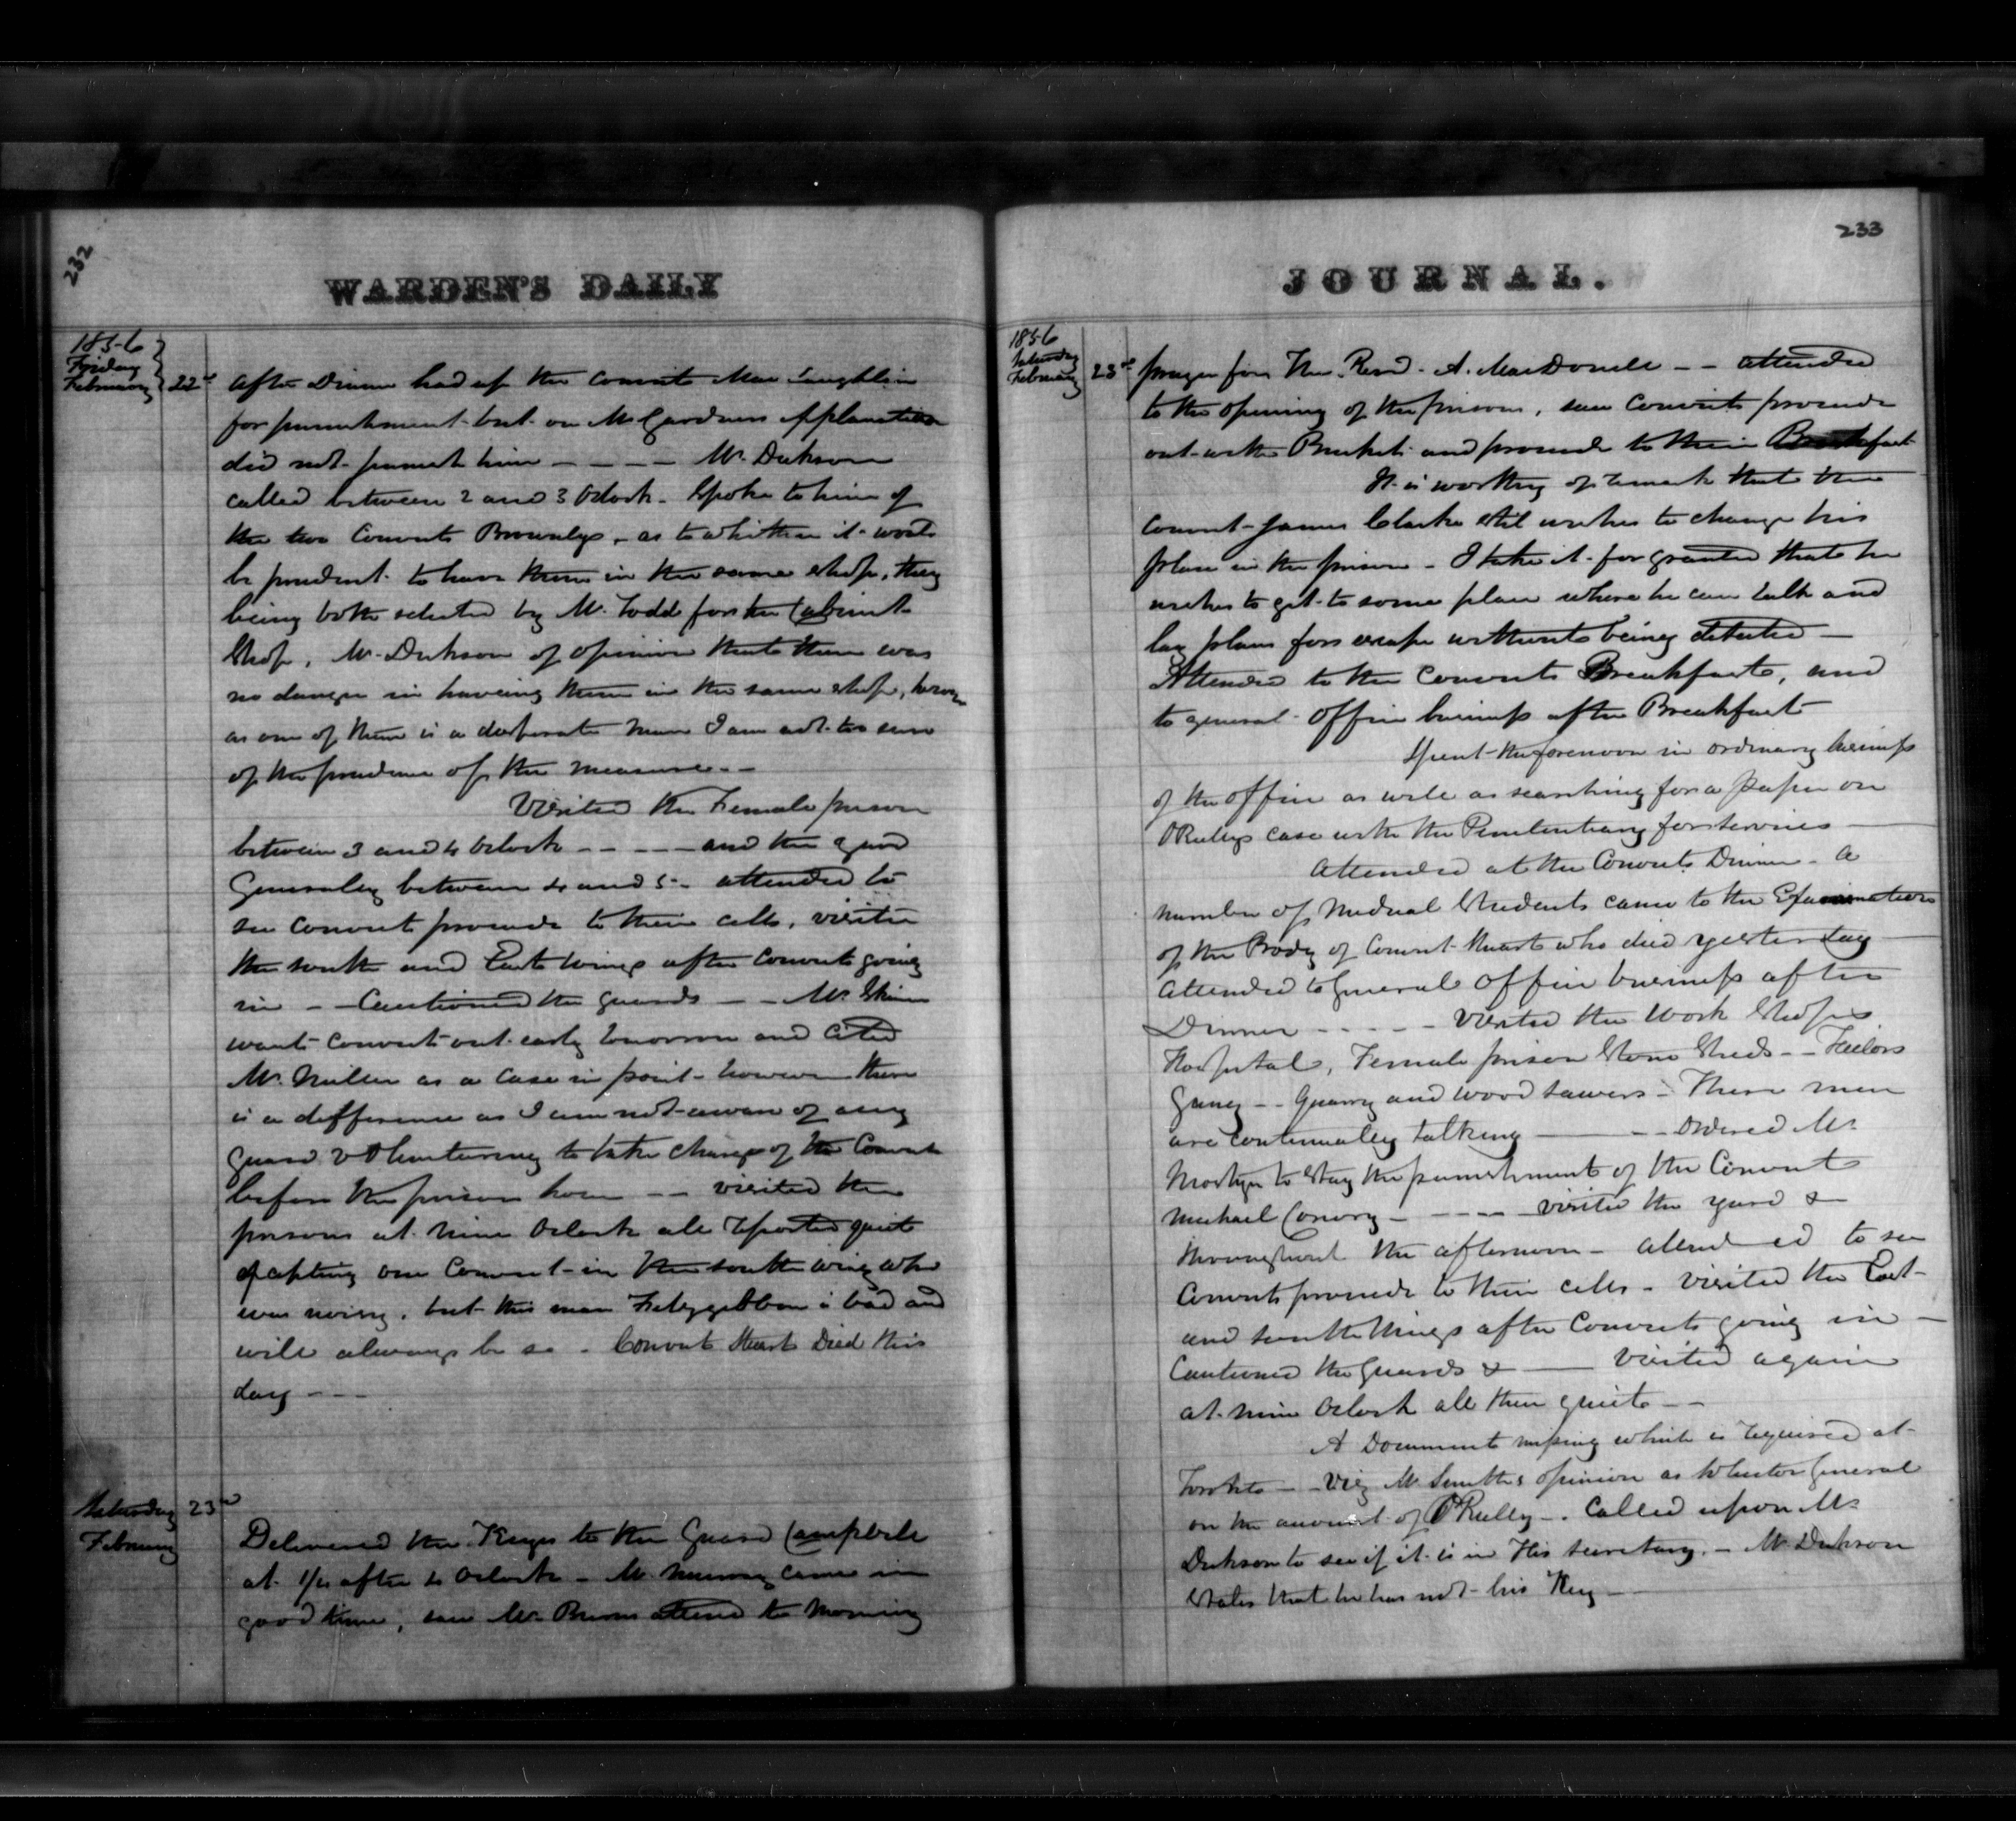 232
WARDEN'S DAILY
1856
Friday
February 22d
After Dinner had up the Convict MacLaughlin
for punishment but on Mr Gardners Explanation
did not punish him - - - - Mr. Dickson
called between 2 and 3 Oclock - Spoke to him of
the two Convicts Brownlys, as to whither it would
be prudent to have them in the same Shop, they
being both selected by Mr. Todd for the Cabinet
Shop, Mr. Dickson of opinion that there was
no danger in haveing them in the same shop, however
as one of them is a desperate man I am not too sure
of the prudence of the measure - -
Visited the Female prison
between 3 and 4 Oclock - - - - and the yard
Generaley between 4 and 5 - attended to
see Convicts proceede to their cells, visited
the South and East Wings after Convicts going
in - - Cautioned the guards - - Mr. Skinner
wants Convicts out early tomorrow and cited
Mr. Miller as a Case in point - however there
is a difference as I am not aware of any
guard vOlunteering to take charge of the Convicts
before the prison hour - - visited the
prisons at nine Oclock all reported quiet
Excepting one Convict in the South wing who
was noisy, but this man Fitzgibbon is bad and
will always be so - Convict Heart Died this
day - - -
Saturday 23d
February
Delivered the Keeys to the Guard Campbell
at 1/4 after 6 Oclock - Mr. came in
good time, saw Mr. attend to Morning
233
JOURNAL.
1856
Saturday
February 23d
prayer for The Revd. A. MacDonell - - attended
to the opening of the prison, saw Convicts proceede
out with Buckets and proceede to their Breakfast
It is worthy of remark that the
Convict James Clarke still wishes to change his
place in the prison - I take it for granted that he
wishes to get to some place where he can talk and
lay plans for escape without being detected -
Attended to the Convicts Breakfast, and
to general Office business after Breakfast
Spent the forenoon in ordinary business
of the office as well as searching for a paper on
OReillys case with the Penitentiary for services
Attended at the Convicts Dinner - A
number of Medical Students came to the Examination
of the Body of Convict Heart who died yesterday
Attended to General Office business after
Dinner - - - - - Visited the Work Shops
Hospital, Female prison Stone Sheds - - Tailors
Gang - - Quarry and wood sawers - These men
are Continualey talking - - - Ordered Mr.
Mostyn to Stay the punishment of the Convict
Michael Conroy - - - - - visited the yard &
throughout the afternoon - attended to see
Convicts proceede to their cells - visited the East
and South Wings after Convicts going in -
Cautioned the Guards & - Visited again
at nine Oclock all then quiet - -
A Document missing which is required at
Toronto - - Viz Mr. Smiths opinion as Solicitor General
on the amount of O'Reilly - Called upon Mr.
Dickson to see if it is in His secretary, - Mr. Dickson
States that he has not his Key -